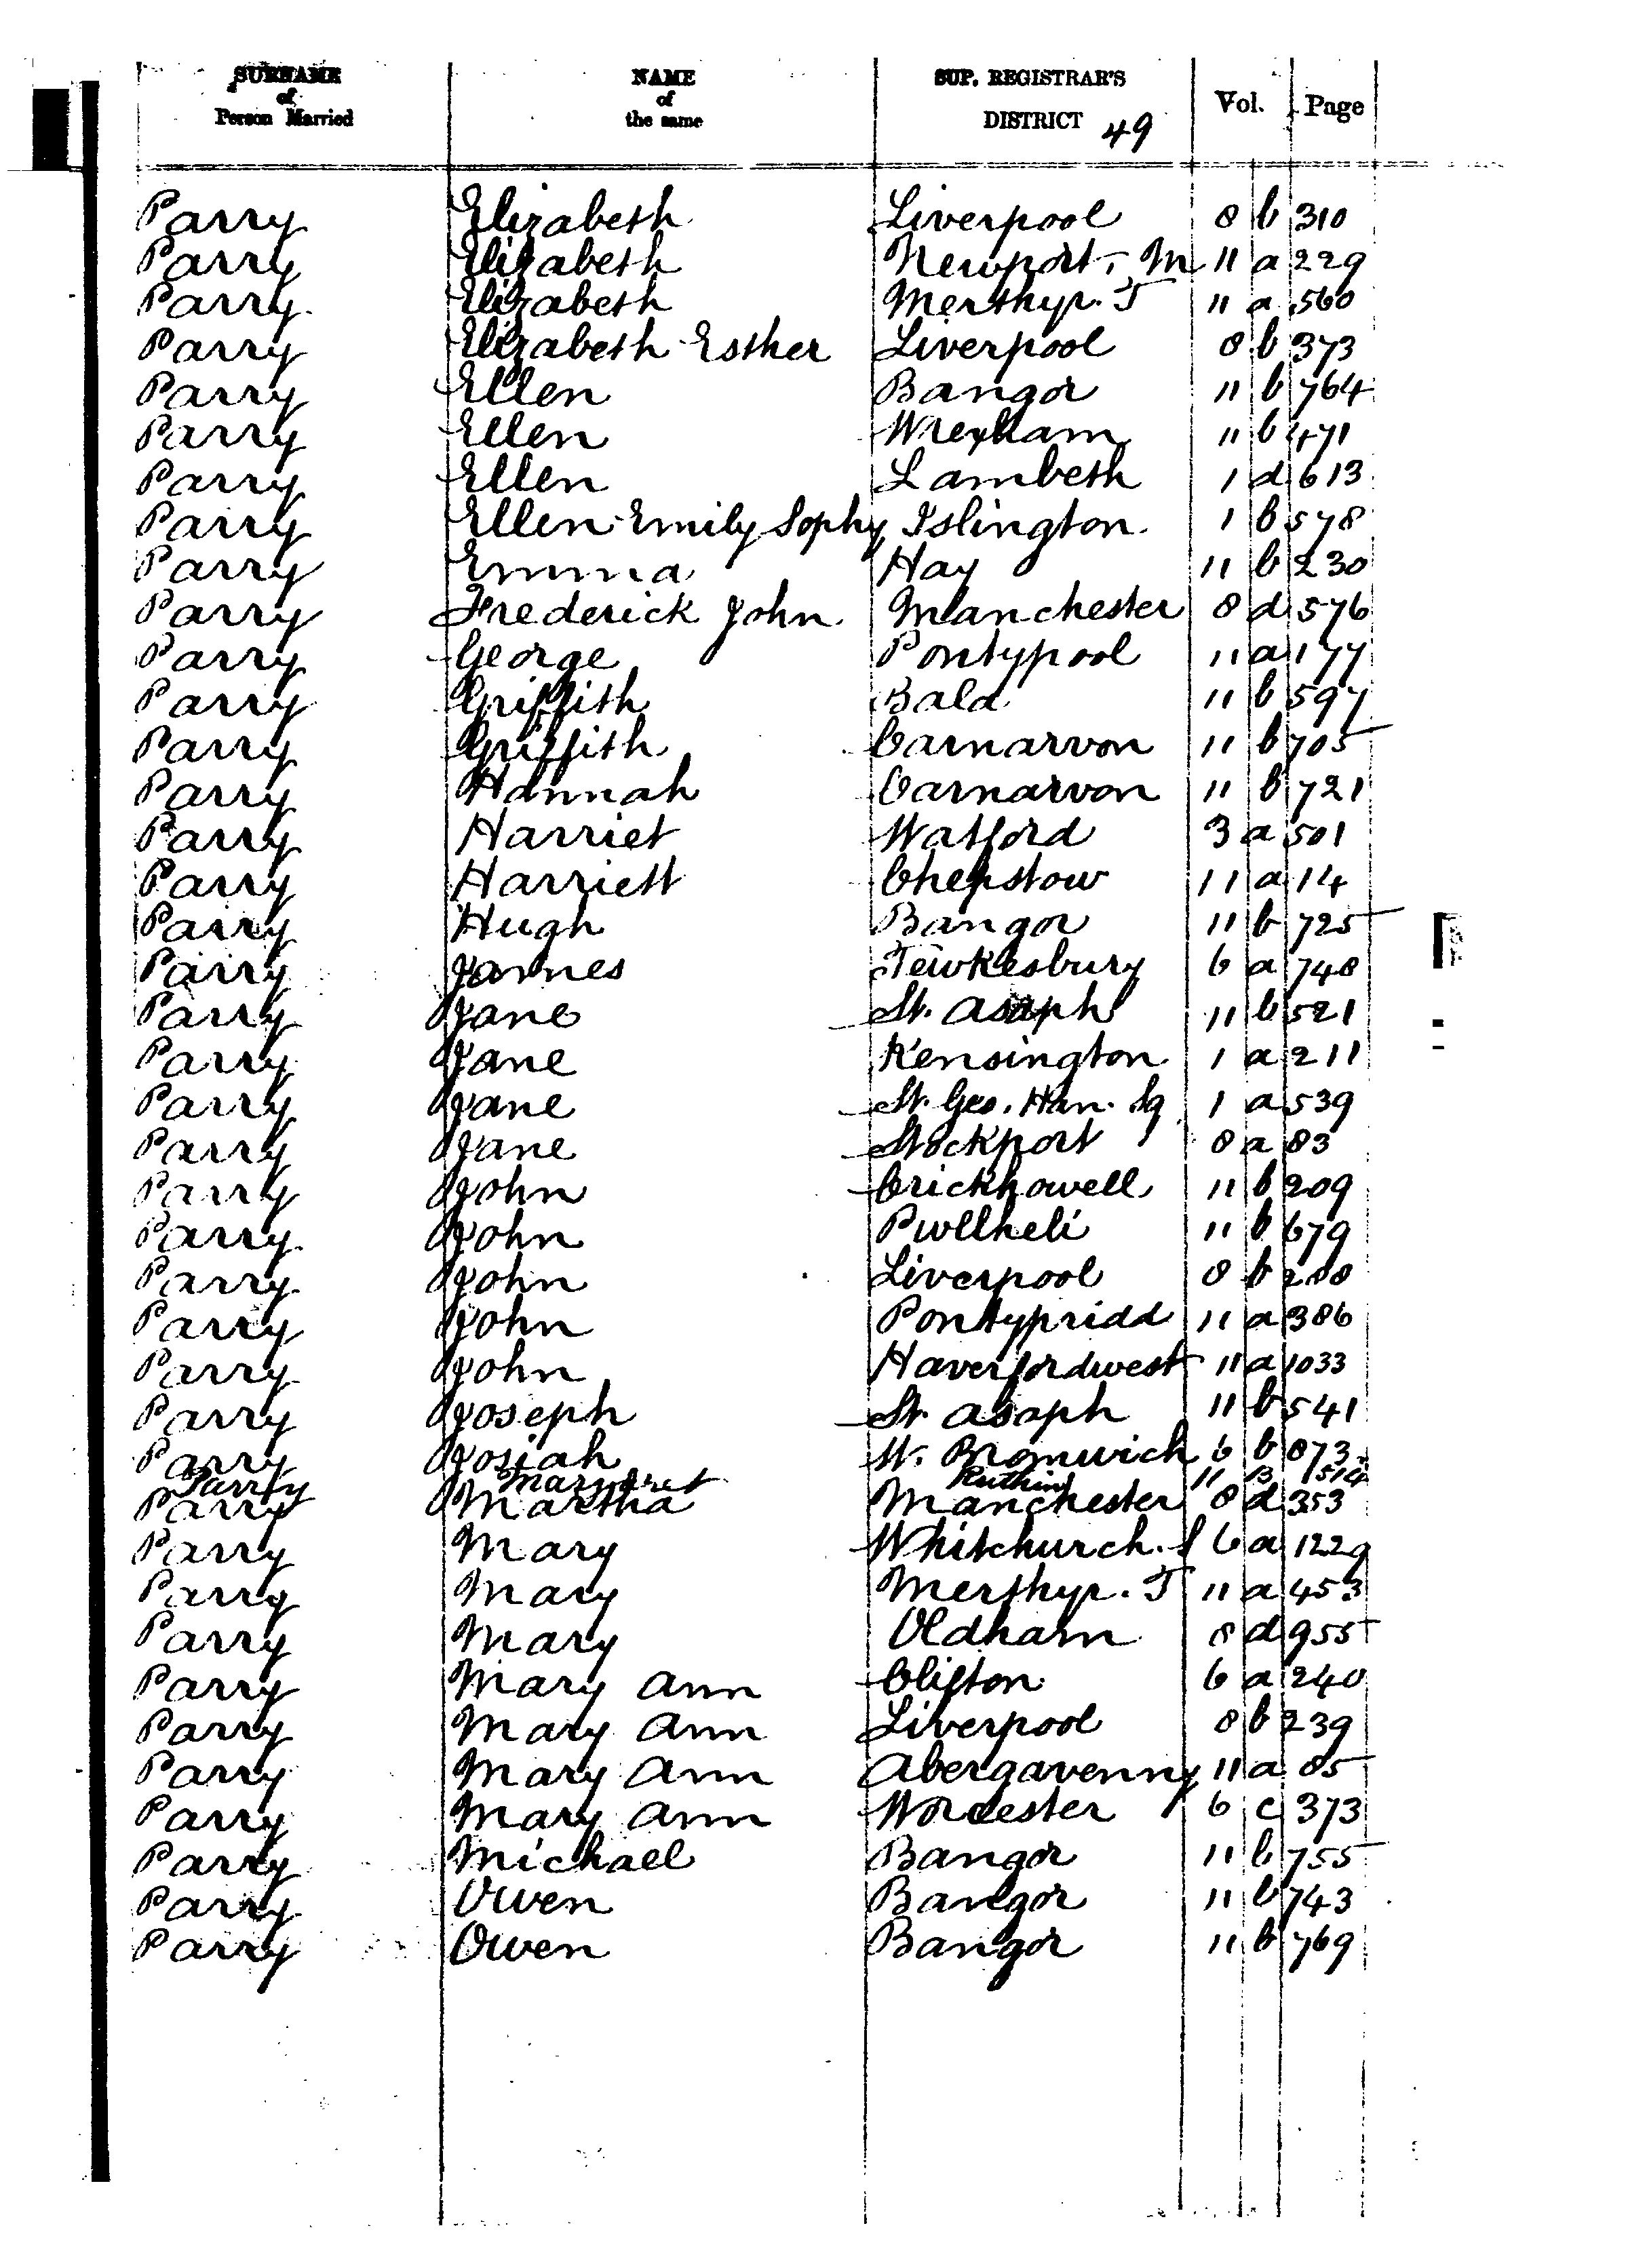 SURNAME of Person Married NAME of the same SUP. REGISTRAR'S DISTRICT 49 Vol. Page
Parry Elizabeth Liverpool 8 b 310
Parry Elizabeth Newport, M 11 a 229
Parry Elizabeth Merthyr. T 11 a 560
Parry Elizabeth Esther Liverpool 8 b 373
Parry Ellen Bangor 11 b 764
Parry Ellen Wrexham 11 b 471
Parry Ellen Lambeth 1 d 613
Parry Ellen Emily Sophy Islington 1 b 578
Parry Emma Hay 11 b 230
Parry Frederick John Manchester 8 d 576
Parry George Pontypool 11 a 177
Parry Griffith Bala 11 b 597
Parry Griffith Carnarvon 11 b 705
Parry Hannah Carnarvon 11 b 721
Parry Harriet Watford 3 a 501
Parry Harriett Chepstow 11 a 14
Parry Hugh Bangor 11 b 725
Parry James Tewkesbury 6 a 748
Parry Jane St. Asaph 11 b 521
Parry Jane Kensington 1 a 211
Parry Jane St. Geo. Han. Sq 1 a 539
Parry Jane Stockport 8 a 83
Parry John Crickhowell 11 b 209
Parry John Pwllheli 11 b 679
Parry John Liverpool 8 b 288
Parry John Pontypridd 11 a 386
Parry John Haverfordwest 11 a 1033
Parry Joseph St. Asaph 11 b 541
Parry Josiah W. Bromwich 6 b 873
Parry Margaret Ruthin 11 B 514
Parry Martha Manchester 8 d 353
Parry Mary Whitchurch. S 6 a 1229
Parry Mary Merthyr. T 11 a 453
Parry Mary Oldham 8 d 955
Parry Mary Ann Clifton 6 a 240
Parry Mary Ann Liverpool 8 b 239
Parry Mary Ann Abergavenny 11 a 85
Parry Mary Ann Worcester 6 c 373
Parry Michael Bangor 11 b 755
Parry Owen Bangor 11 b 743
Parry Owen Bangor 11 b 769